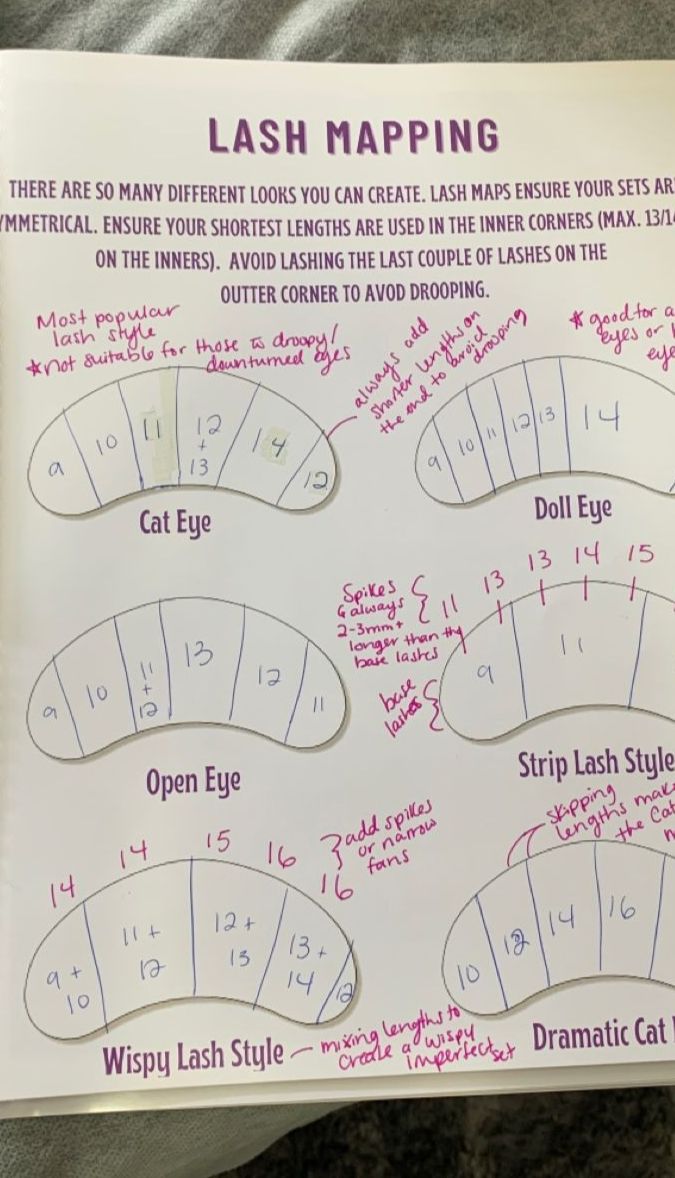 LASH MAPPING
THERE ARE SO MANY DIFFERENT LOOKS YOU CAN CREATE. LASH MAPS ENSURE YOUR SETS AR
YMMETRICAL. ENSURE YOUR SHORTEST LENGTHS ARE USED IN THE INNER CORNERS (MAX. 13/14
ON THE INNERS). AVOID LASHING THE LAST COUPLE OF LASHES ON THE
OUTTER CORNER TO AVOD DROOPING.
Most popular
lash style
*not suitable for those w droopy/
downturned eyes
always add
shorter lengths on
the end to avoid
drooping
9 10 11 12 + 13 14 12
Cat Eye
* good for a
eyes or
eye
9 10 11 12 13 14
Doll Eye
9 10 11 + 12 13 12 11
Open Eye
Spikes
always
2-3mm+
longer than the
base lashes
11 13 13 14 15
base
lashes
9 11
Strip Lash Style
14 14 15 16 16
add spikes
or narrow
fans
9 + 10 11 + 12 12 + 13 13 + 14 12
Wispy Lash Style
mixing lengths to
create a wispy
imperfect set
skipping
lengths make
the Cat
10 12 14 16
Dramatic Cat